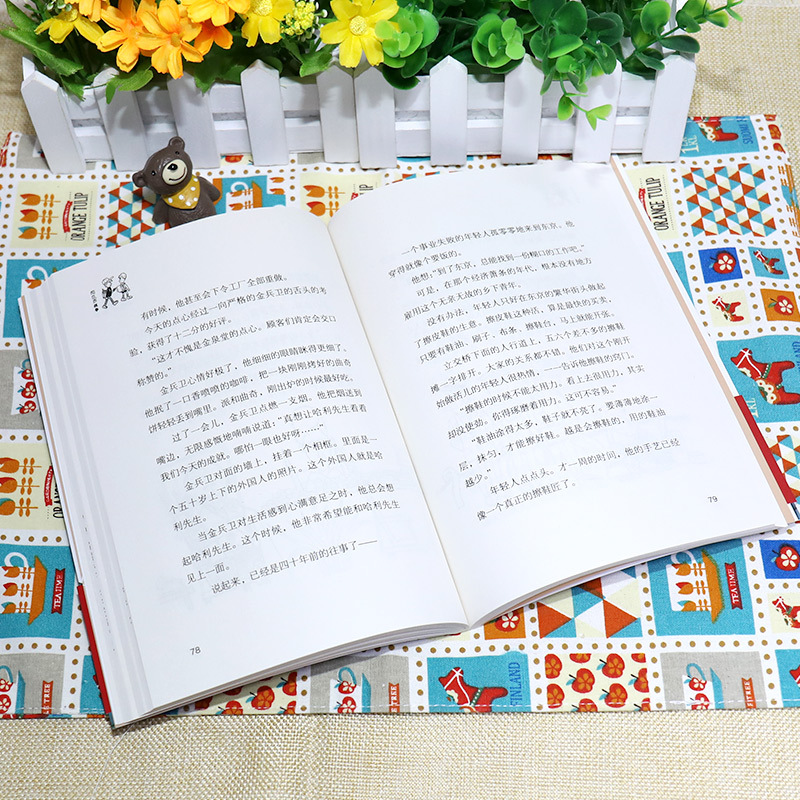 有时候，他甚至会下令工厂全部重做。
今天的点心经过一向严格的金兵卫的舌头的考
验，获得了十二分的好评。
“这才不愧是金泉堂的点心。顾客们肯定会交口
称赞的。”
金兵卫心情好极了，他细细的眼睛眯得更细了。
他抿了一口香喷喷的咖啡，把一块刚刚烤好的曲奇
饼轻轻丢到嘴里。派和曲奇，刚出炉的时候最好吃。
过了一会儿，金兵卫点燃一支烟。他把烟送到
嘴边，无限感慨地喃喃说道：“真想让哈利先生看看
我们今天的成就。哪怕一眼也好呀……”
金兵卫对面的墙上，挂着一个相框。里面是一
个五十岁上下的外国人的照片。这个外国人就是哈
利先生。
当金兵卫对生活感到心满意足之时，他总会想
起哈利先生。这个时候，他非常希望能和哈利先生
见上一面。
说起来，已经是四十年前的往事了——
78
一个事业失败的年轻人孤零零地来到东京。他
穿得就像个要饭的。
他想：“到了东京，总能找到一份糊口的工作吧。”
可是，在那个经济萧条的年代，根本没有地方
雇用这个无亲无故的乡下青年。
没有办法，年轻人只好在东京的繁华街头做起
了擦皮鞋的生意。擦皮鞋这种活，算是最快的买卖，
只要有鞋油、刷子、布条、擦鞋台，马上就能开张。
立交桥下面的人行道上，五六个差不多的擦鞋
摊一字排开。大家的关系都不错。他们对这个刚开
始做活儿的年轻人很热情——告诉他擦鞋的窍门。
“擦鞋的时候不能太用力。看上去很用力，其实
却没使劲。你得琢磨着用力。这可不容易。”
“鞋油涂得太多，鞋子就不亮了。要薄薄地涂一
层，抹匀，才能擦好鞋。越是会擦鞋的，用的鞋油
越少。”
年轻人点点头。才一周的时间，他的手艺已经
像一个真正的擦鞋匠了。
79
ORANGE TULIP
ORANGE TULIP
TEA TIME
TEA TIME
FINLAND